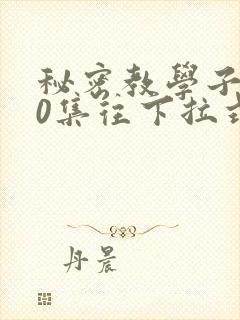 秘密教學子
0集往下拉式
丹晨